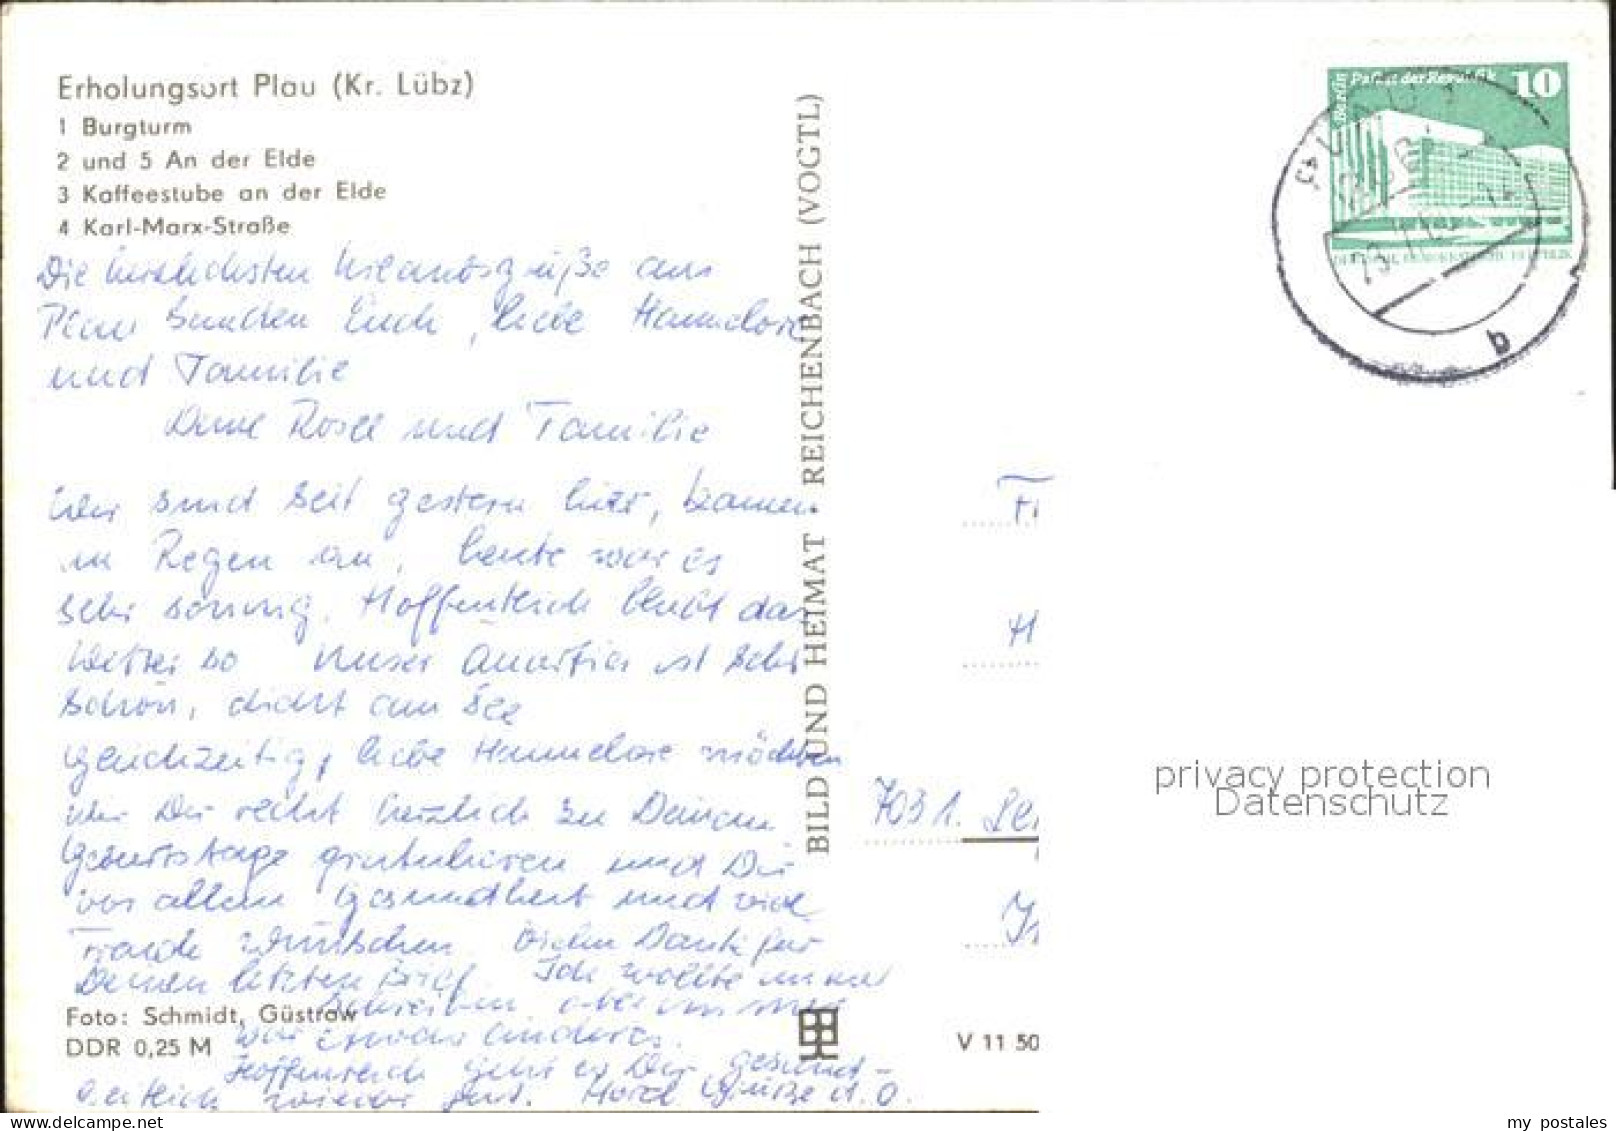 Erholungsort Plau (Kr. Lübz)
1 Burgturm
2 und 5 An der Elde
3 Kaffeestube an der Elde
4 Karl-Marx-Straße
Die herzlichsten Urlaubsgrüße aus
Plau senden Euch, liebe Hannelore
und Familie
Deine Rosel und Familie
Wir sind seit gestern hier, kamen
im Regen an, heute war es
sehr sonnig. Hoffentlich bleibt das
Wetter so Unser Quartier ist sehr
schön, dicht am See
Gleichzeitig, liebe Hannelore möchten
wir Dir recht herzlich zu Deinem
Geburtstage gratulieren und Dir
vor allem Gesundheit und viel
Freude wünschen. Vielen Dank für
Deinen letzten Brief. Ich wollte immer
schreiben, aber immer
war etwas anderes.
Hoffentlich geht es Dir gesund-
heitlich wieder gut. Herzl. Grüße d. O.
Foto: Schmidt, Güstrow
DDR 0,25 M
BILD UND HEIMAT REICHENBACH (VOGTL)
V 11 50
Berlin Palast der Republik 10
b
7031
privacy protection
Datenschutz
my postales